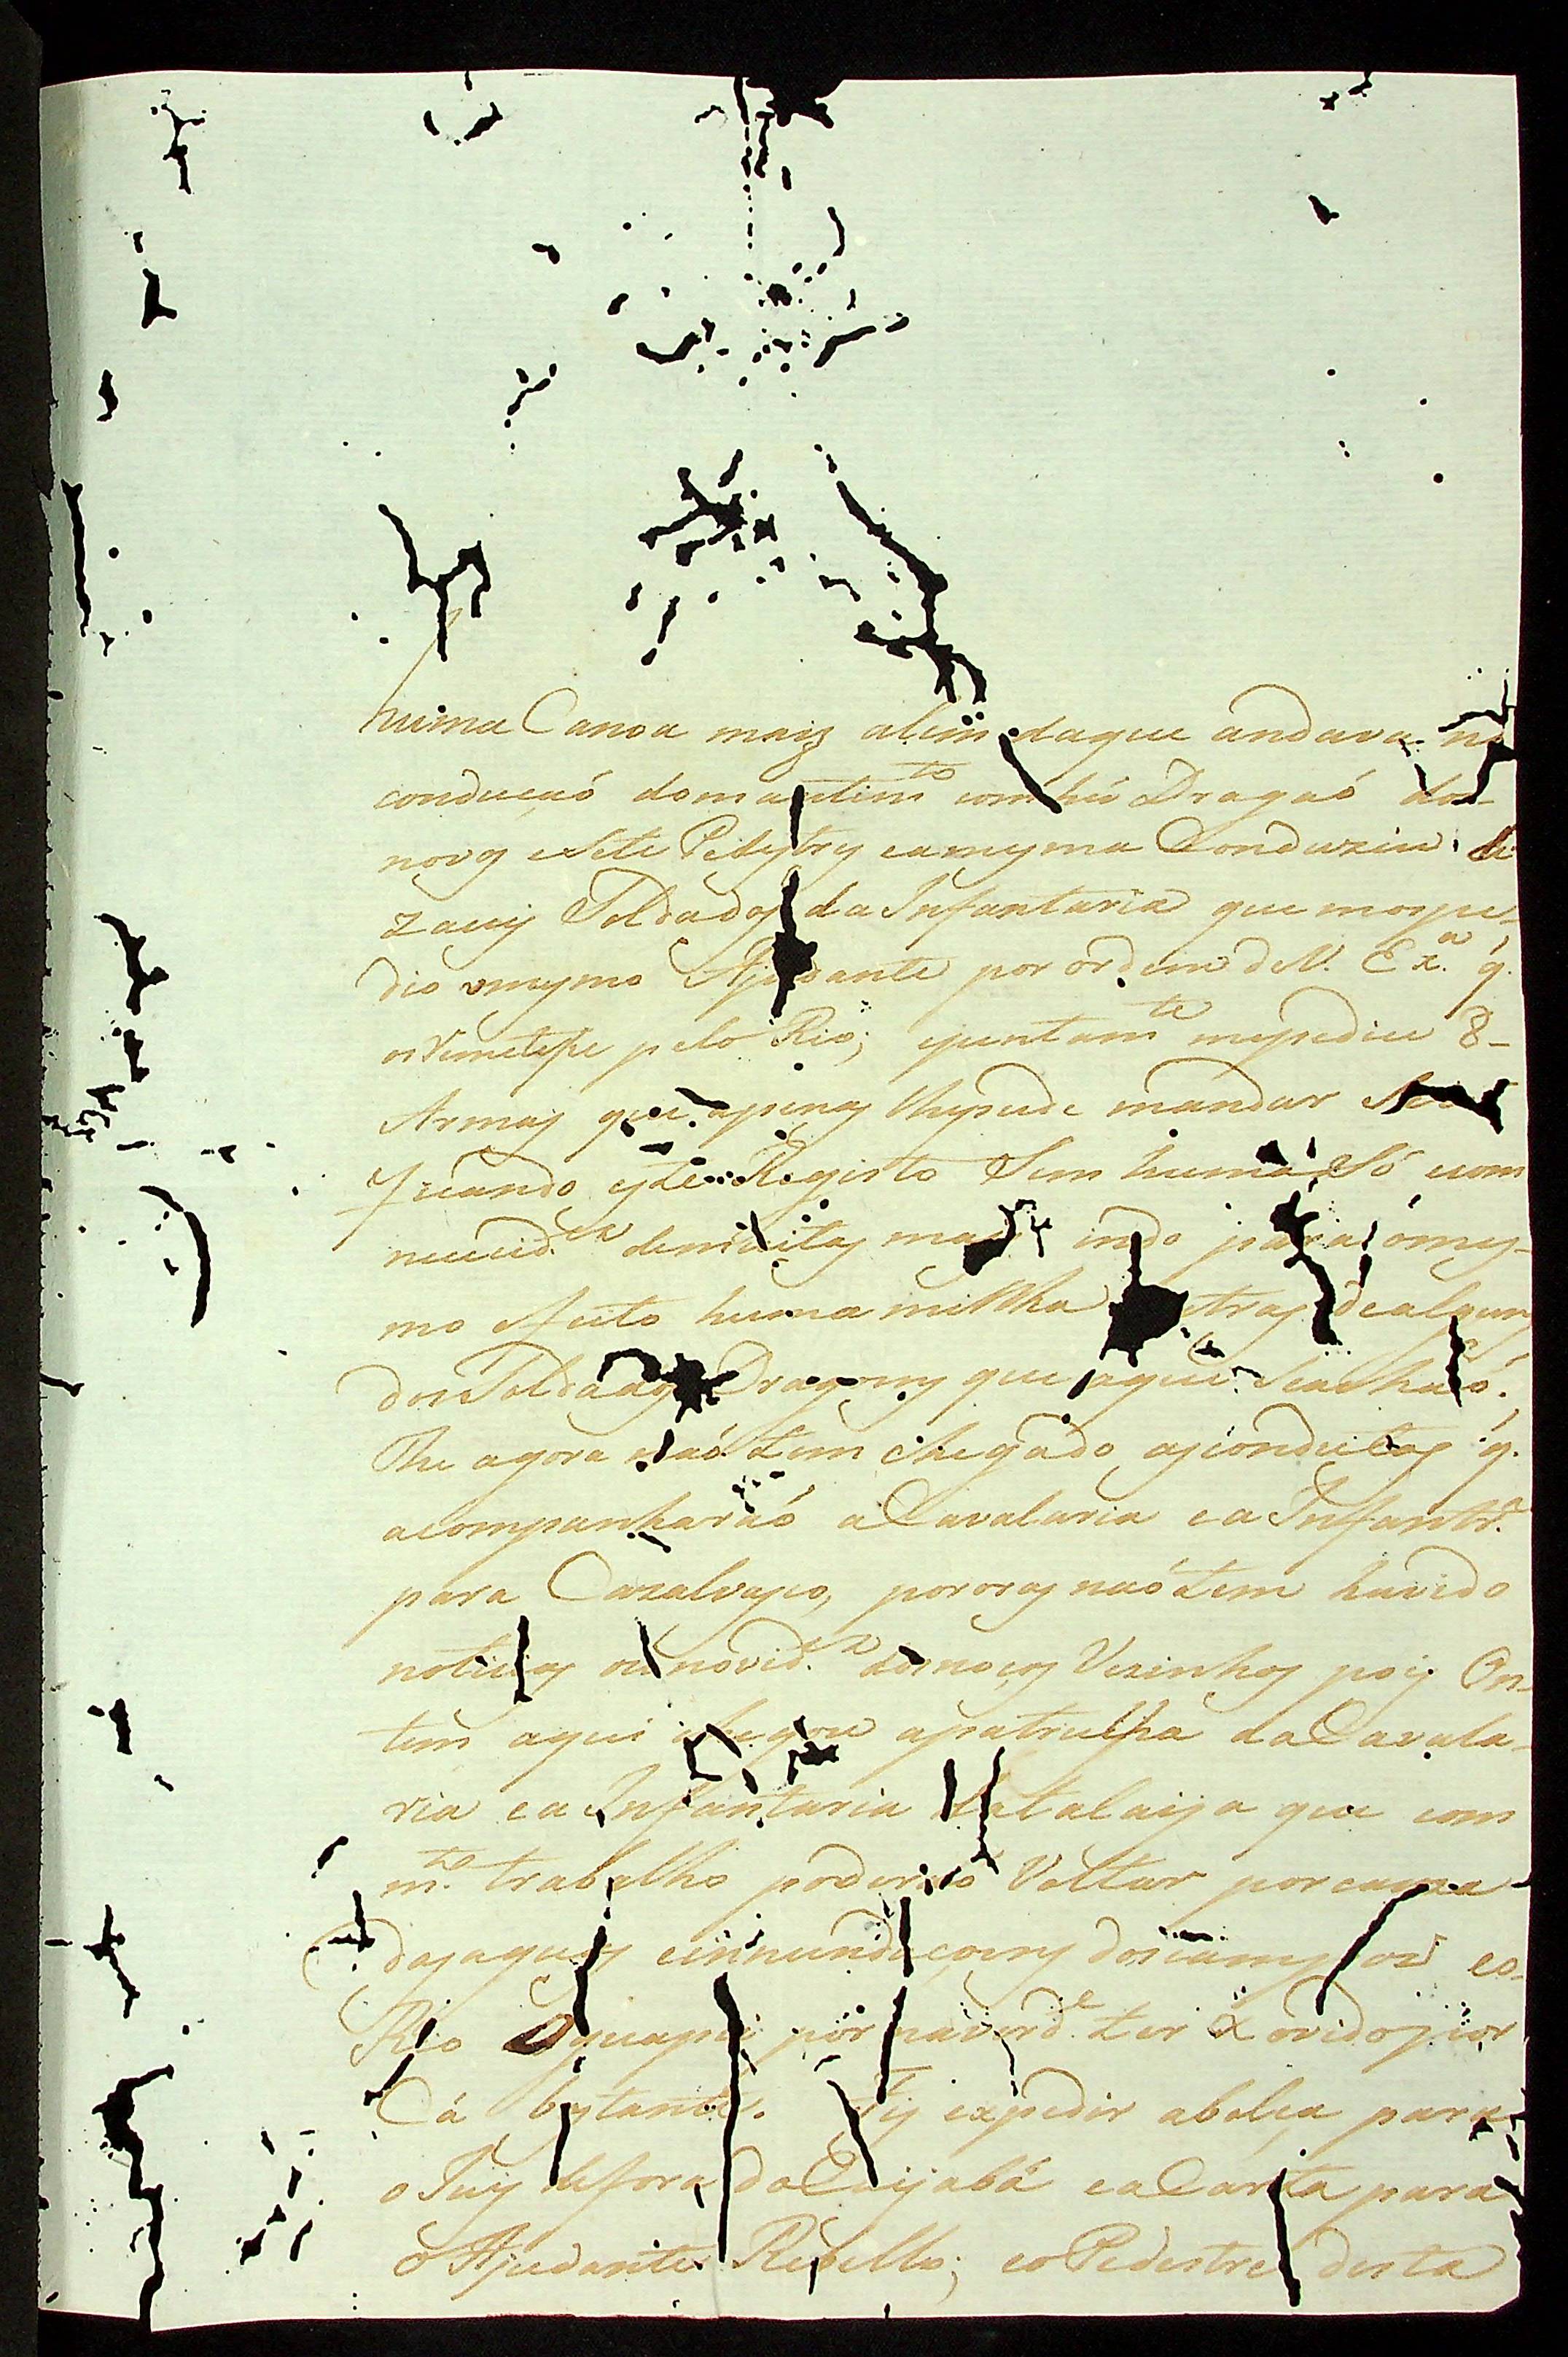 huma Canoa maiz alem daque andava na
conduçaó domantimto comhú Dragaó dos
novos esete Pedestres eamesma Conduziu de
zaceis Soldados da Infantaria que mospe-
dio omesmo Ajudante por ordem de V. Exa. q.
osremetese pelo Rio; ejuntamte mepediu 8-
Armas que apenas lhepude mandar
ficando este Registo Sem huma Só ecom
necesidex demuitas indo para ómes-
mo efeito huma milha dealguns
dos Soldados Dragoens que aqui Seachaó.
The agora naó tem chegado ascondutas q.
acompanharaó aCavalaria ea Infantra.
para Cazalvasco, pororas naó tem havido
noticias ou novides. dosnoços Vezinhos pois On-
tem aqui chegou apatrulha daCavala-
ria ea Infantaria Atalaija que com
mto. trabalho poderaó Voltar porcauza
dasaguas einnundaçoens doscampos eo-
Rio Aguapei por naverde. ter xovidopor
Cá bastante. Fis expedir abolça para
o Juis defora doCuijabá eaCarta para
o Ajudante Rebello; eo Pedestre desta